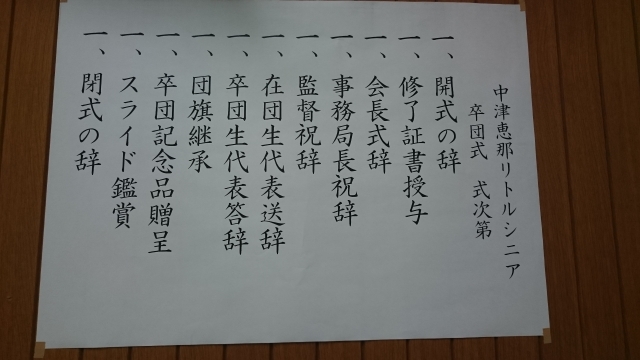 中津恵那リトルシニア
卒団式 式次第
一、開式の辞
一、修了証書授与
一、会長式辞
一、事務局長祝辞
一、監督祝辞
一、在団生代表送辞
一、卒団生代表答辞
一、団旗継承
一、卒団記念品贈呈
一、スライド鑑賞
一、閉式の辞